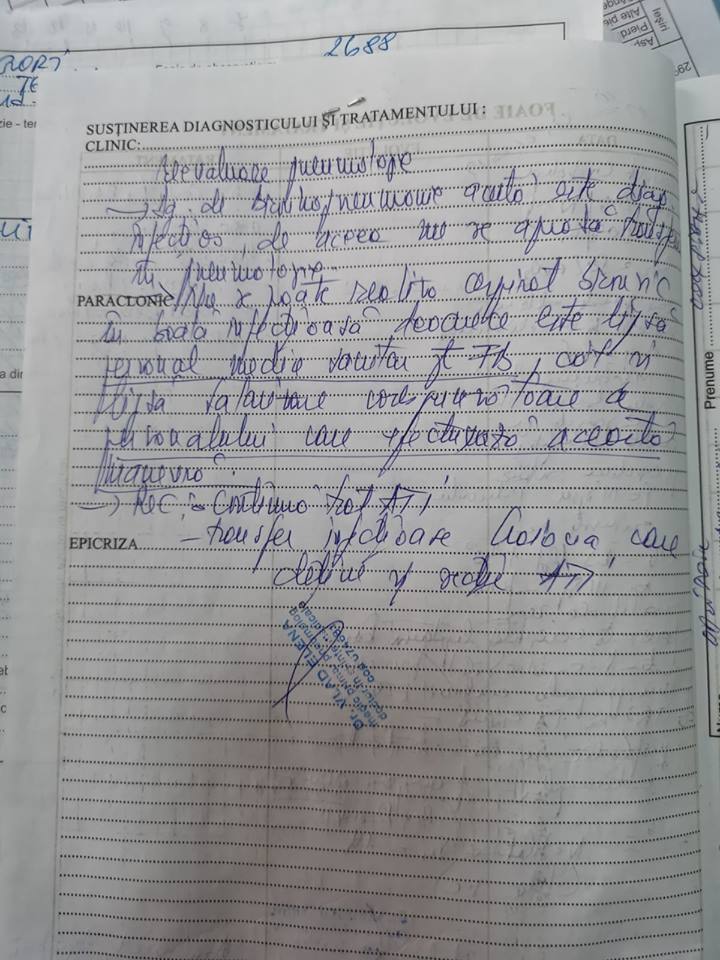 2688
SUSȚINEREA DIAGNOSTICULUI ȘI TRATAMENTULUI :
CLINIC:
Reevaluare pneumologie
→ Dg. de bronhopneumonie acută este diag.
infecțios, de aceea nu se aprobă transfer
în pneumologie.
PARACLONIC
Nu se poate realiza aspirat bronșic
în boală infecțioasă deoarece este lipsă
personal medico sanitar pt FB, cât și
lipsă salarizare corespunzătoare a
personalului care efectuează această
manevră.
→ REC: - Continuă trat ATI
EPICRIZA
- transfer infecțioase Craiova, care
deține și secție ATI
Dr. VLAD ELENA
medic primar pneumolog
doctor în științe medicale
cod 074093
Prenume